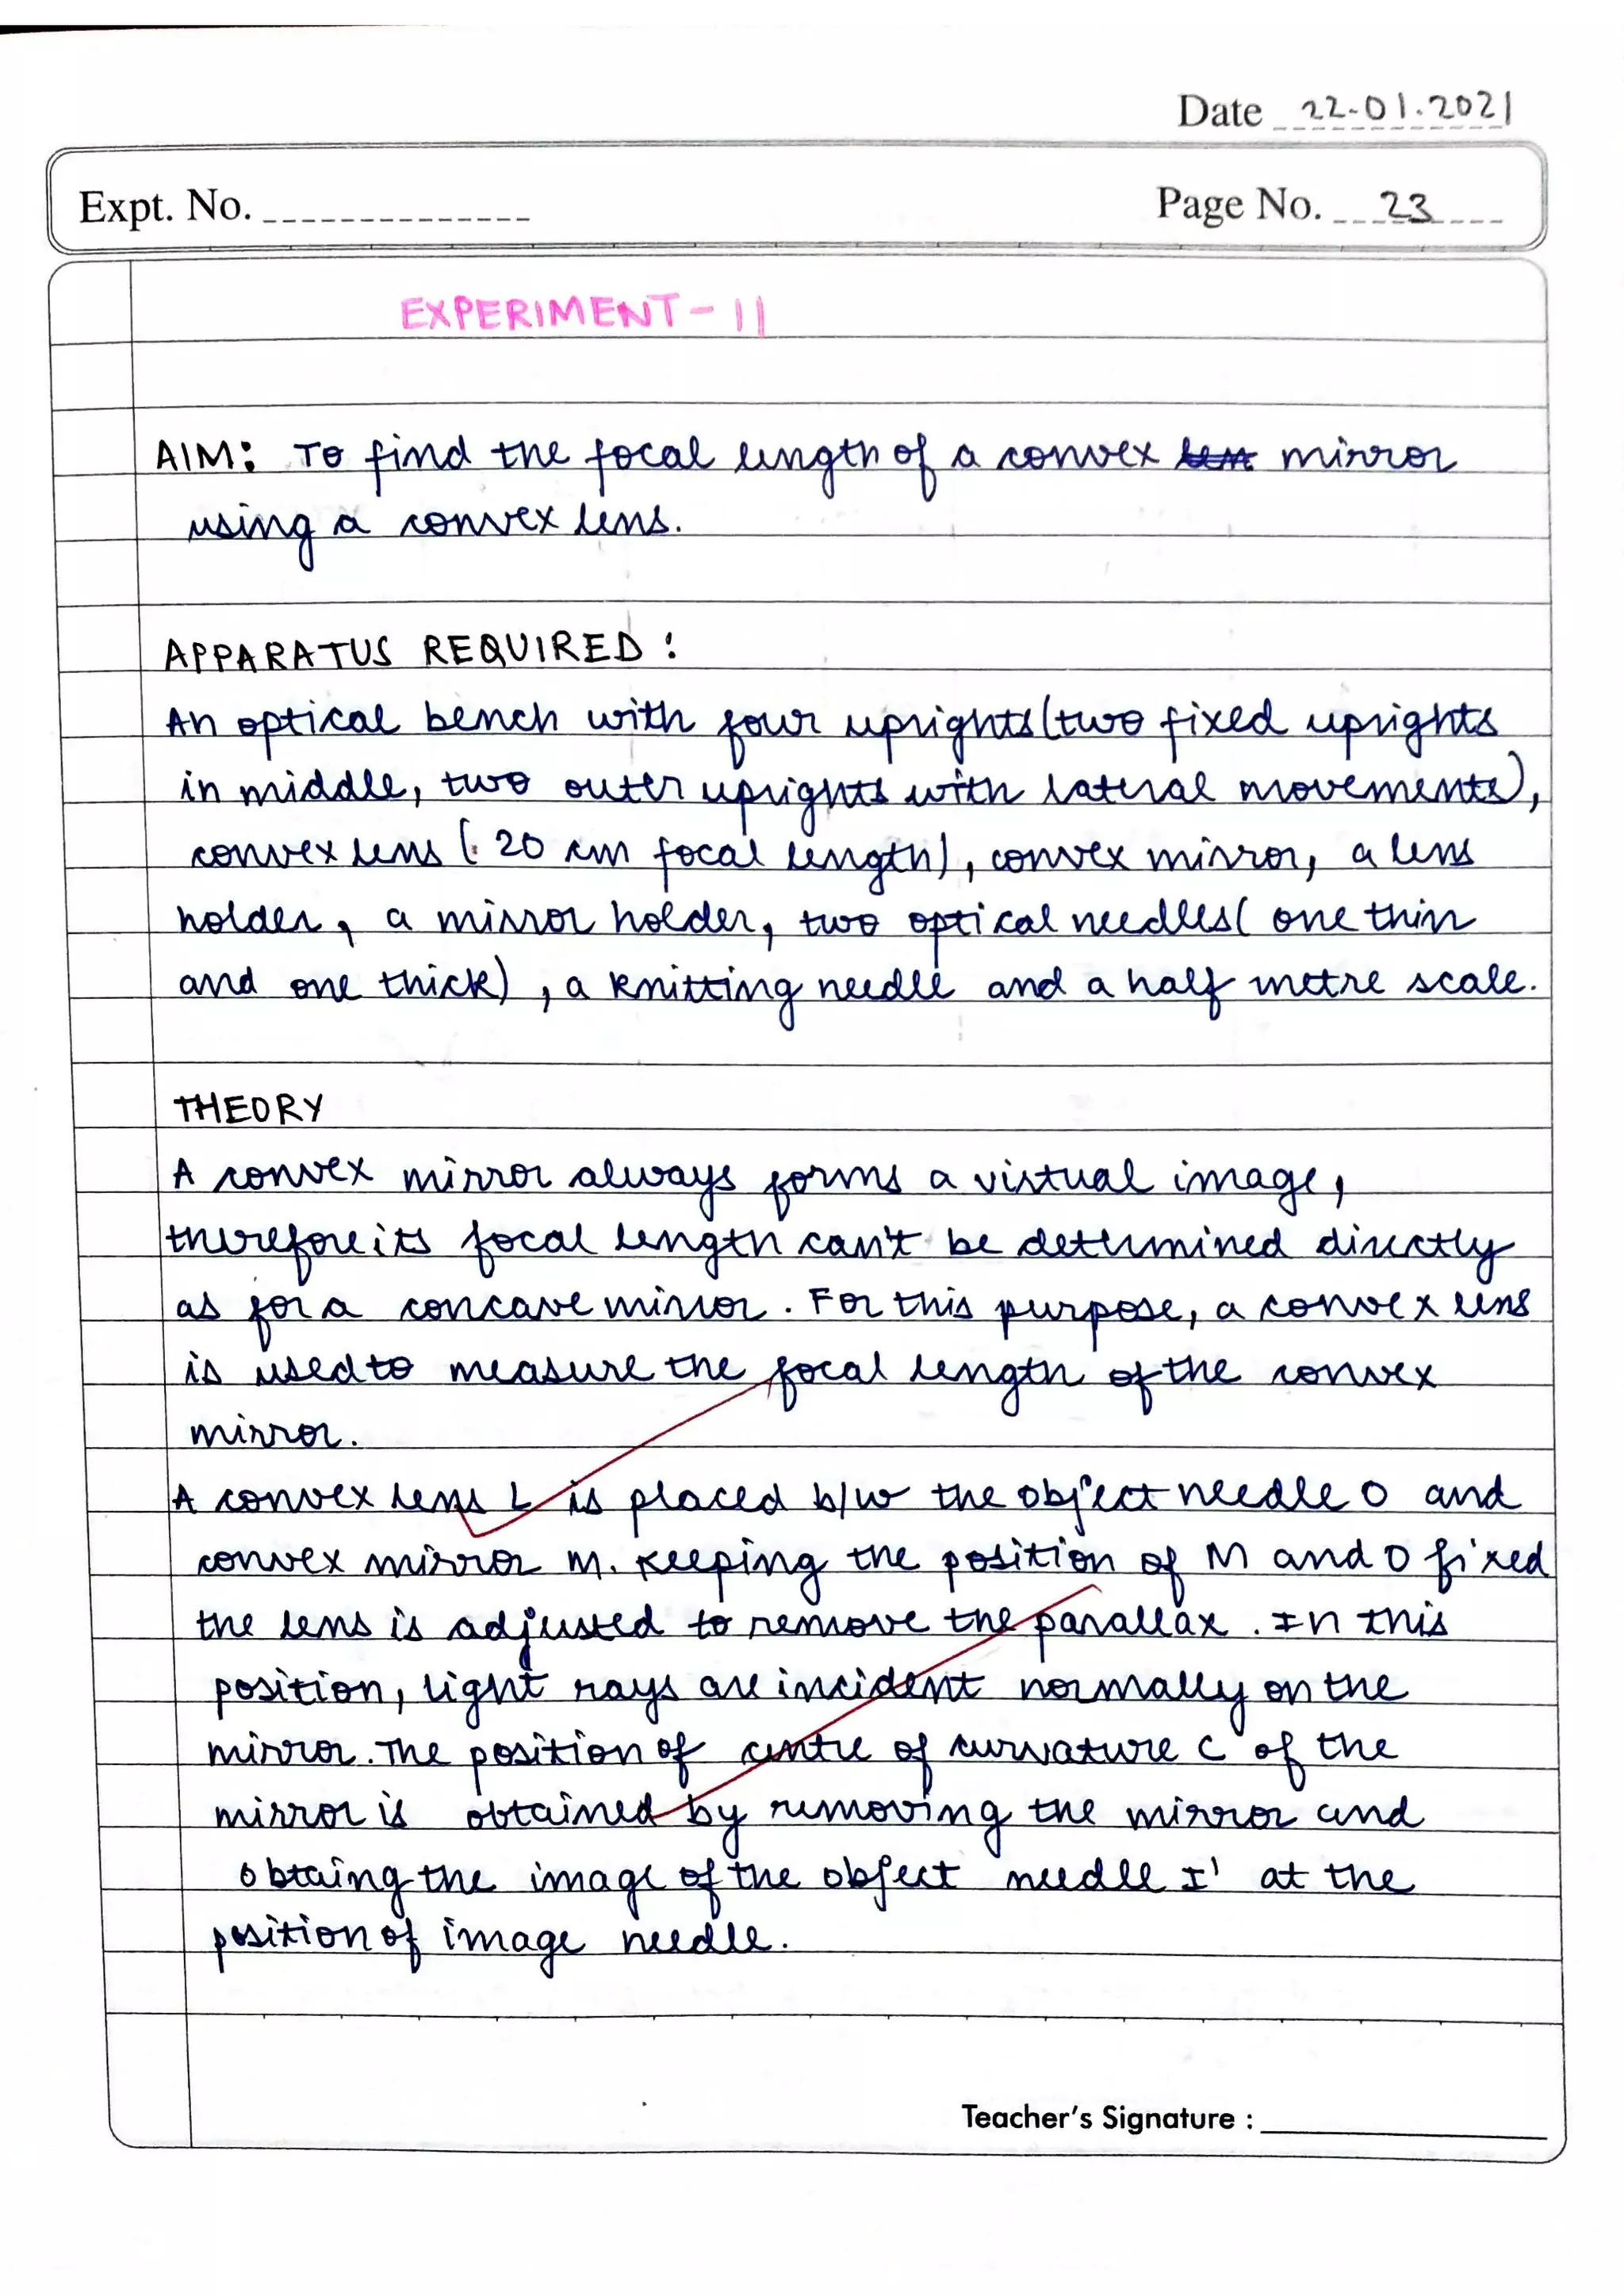 Date 22-01-2021
Expt. No.
Page No. 23
EXPERIMENT-11
AIM: To find the focal length of a convex mirror
using a convex lens.
APPARATUS REQUIRED :
An optical bench with four uprights (two fixed uprights
in middle, two outer uprights with lateral movements),
convex lens (20 cm focal length), convex mirror, a lens
holder, a mirror holder, two optical needles( one thin
and one thick) , a knitting needle and a half metre scale.
THEORY
A convex mirror always forms a virtual image,
therefore its focal length can't be determined directly
as for a concave mirror. For this purpose, a convex lens
is used to measure the focal length of the convex
mirror.
A convex lens L is placed b/w the object needle O and
convex mirror M. Keeping the position of M and O fixed
the lens is adjusted to remove the parallax. In this
position, light rays are incident normally on the
mirror. The position of centre of curvature C of the
mirror is obtained by removing the mirror and
obtaing the image of the object needle I' at the
position of image needle.
Teacher's Signature :